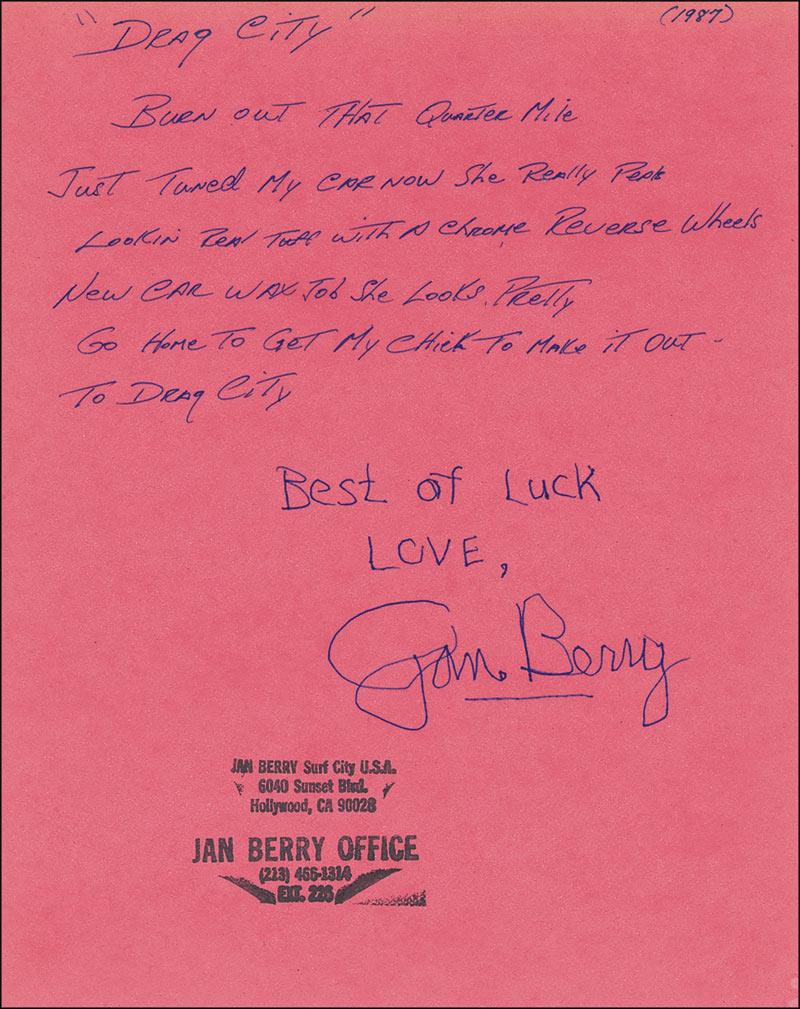 "Drag City"
(1987)
Burn out That Quarter Mile
Just Tuned My CAR NOW She Really Peals
Lookin Real Tuff with A Chrome Reverse Wheels
New CAR WAX Job She Looks Pretty
Go Home To Get My Chick To Make it Out -
To Drag City
Best of Luck
LOVE,
Jan Berry
JAN BERRY Surf City U.S.A.
6040 Sunset Blvd.
Hollywood, CA 90028
JAN BERRY OFFICE
(213) 466-1314
EXT. 226